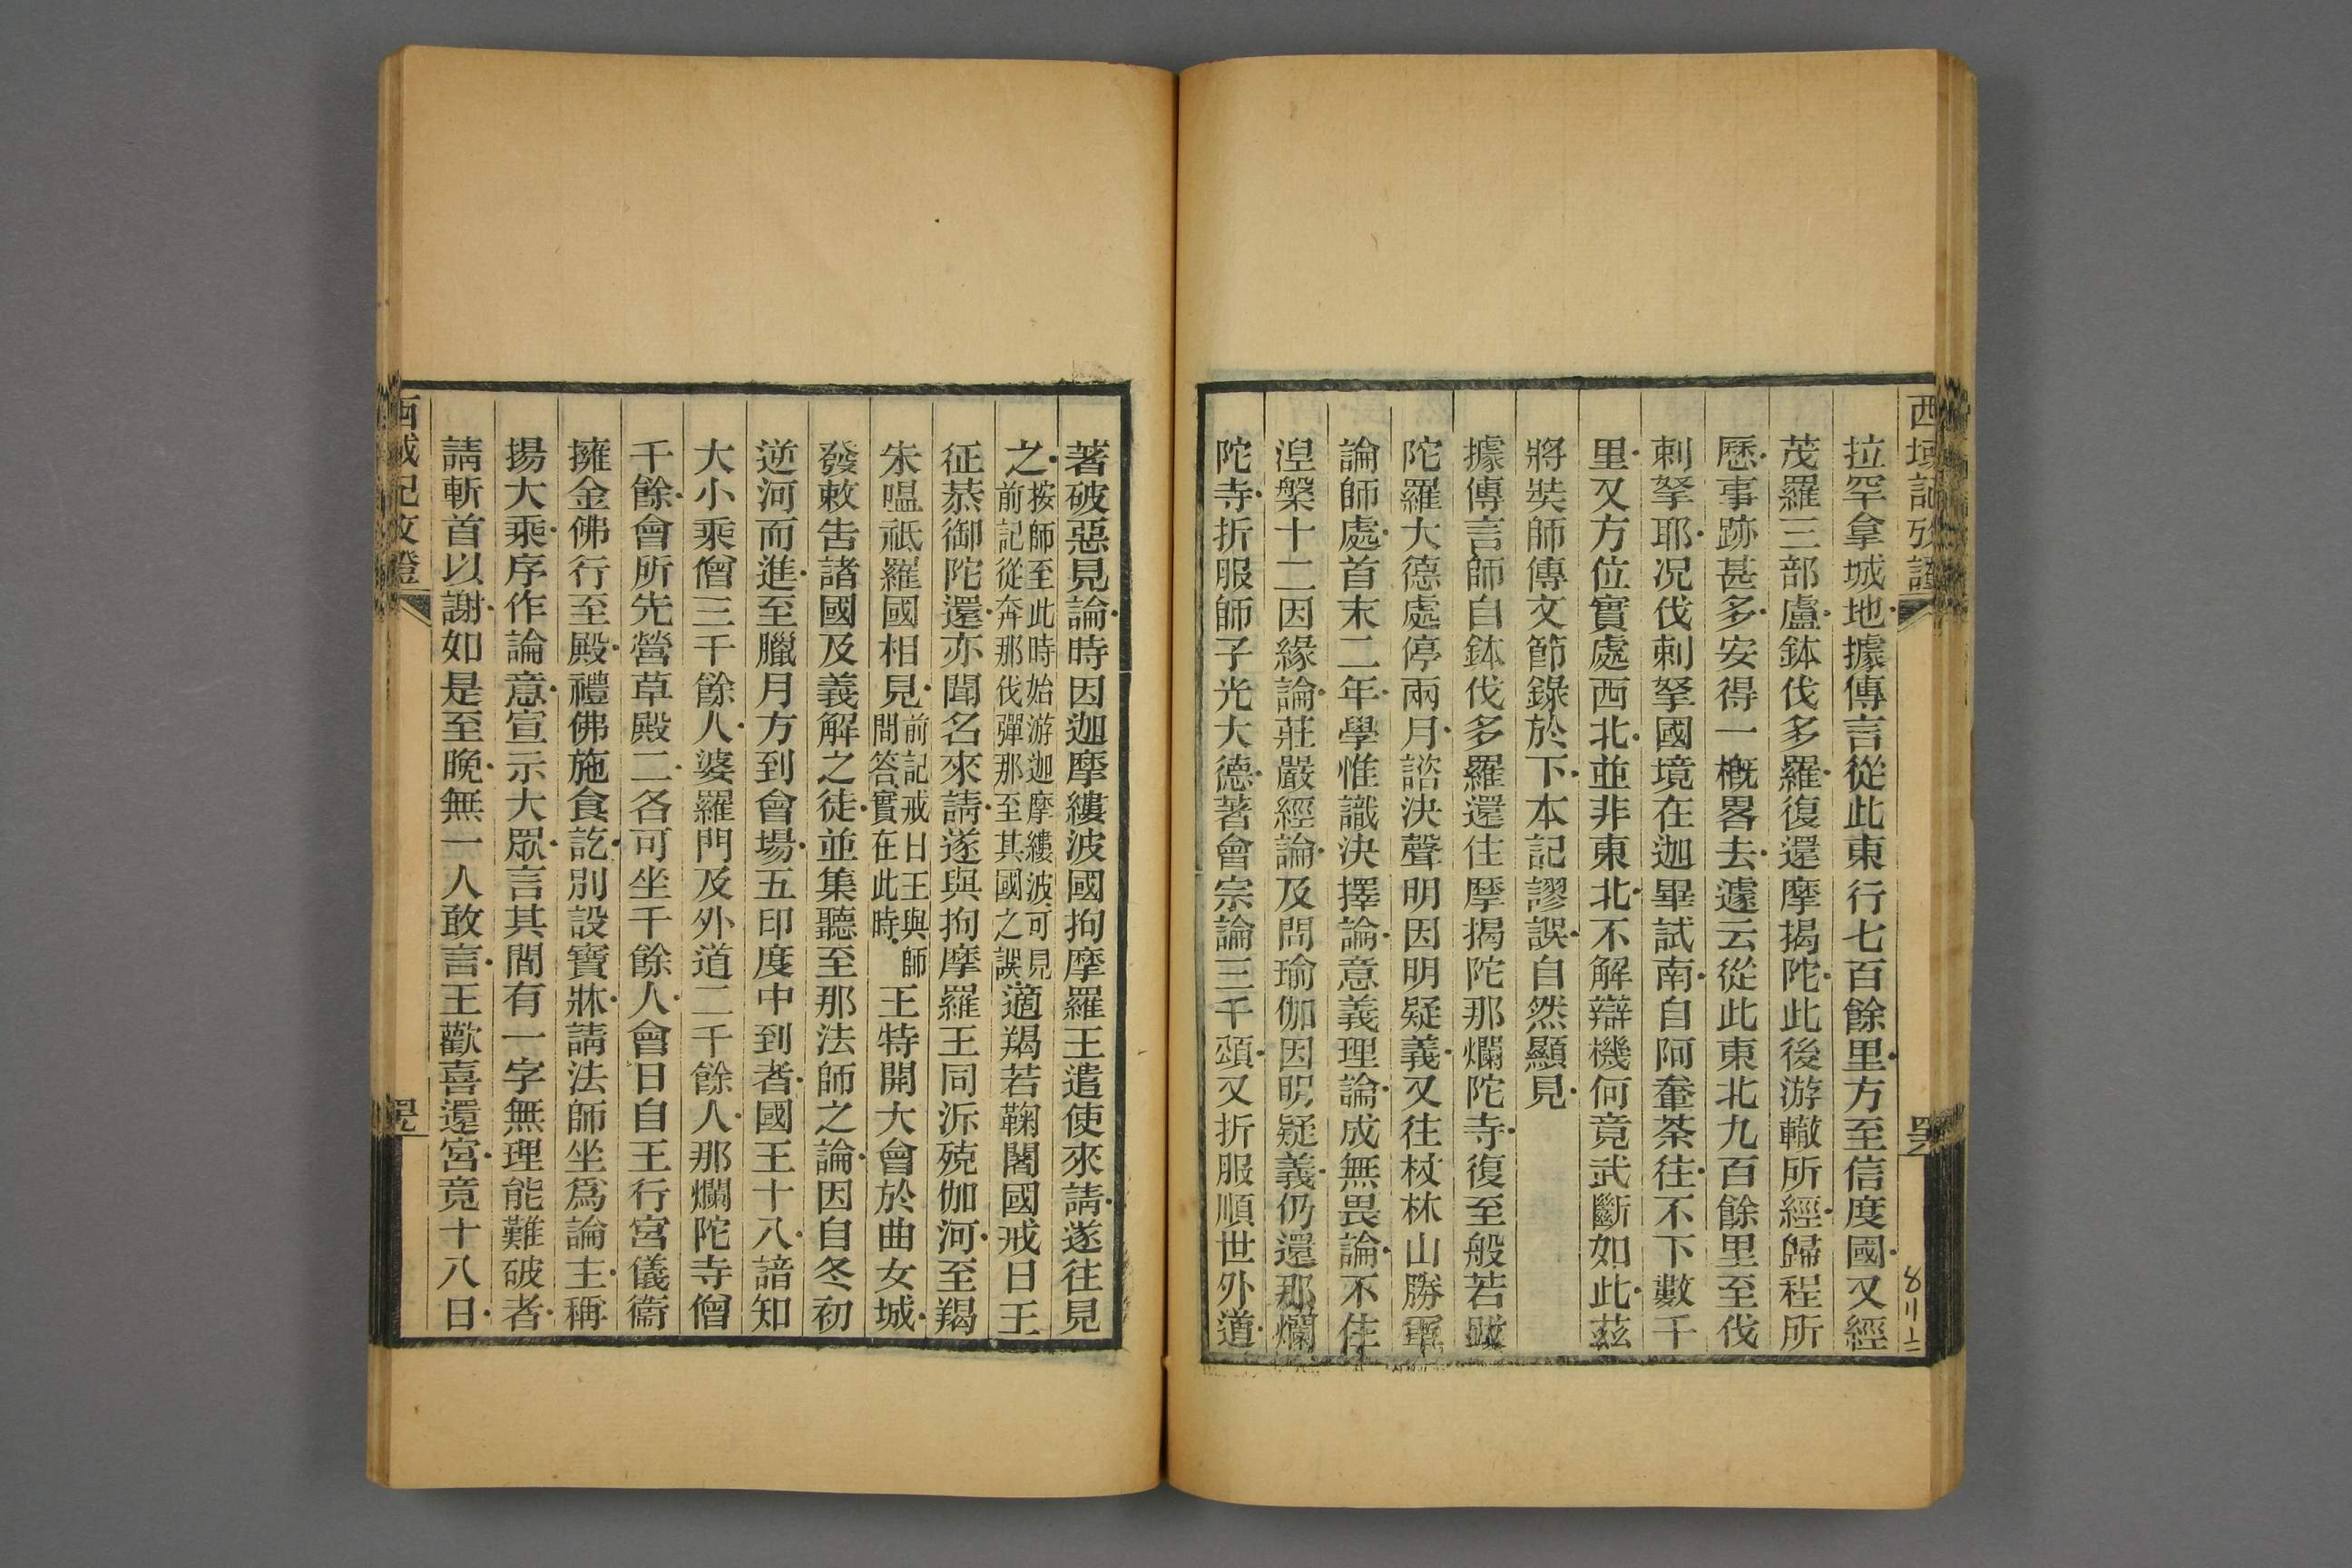 西域記攷證
拉罕拿城地據傳言從此東行七百餘里方至信度國又經
茂羅三部盧鉢伐多羅復還摩揭陀此後游轍所經歸程所
歷事跡甚多安得一槪畧去遽云從此東北九百餘里至伐
刺拏耶况伐刺拏國境在迦畢試南自阿軬荼往不下數千
里又方位實處西北並非東北不解辯機何竟武斷如此茲
將奘師傳文節錄於下本記謬誤自然顯見
據傳言師自鉢伐多羅還住摩揭陀那爛陀寺復至般若跋
陀羅大德處停兩月諮決聲明因明疑義又往杖林山勝軍
論師處首末二年學惟識決擇論意義理論成無畏論不住
湼槃十二因緣論莊嚴經論及問瑜伽因明疑義仍還那爛
陀寺折服師子光大德著會宗論三千頌又折服順世外道
著破惡見論時因迦摩縷波國拘摩羅王遣使來請遂往見
之按師至此時始游迦摩縷波可見前記從奔那伐彈那至其國之誤適羯若鞠闍國戒日王
征恭御陀還亦聞名來請遂與拘摩羅王同泝殑伽河至羯
朱嗢祇羅國相見前記戒日王與師問答實在此時王特開大會於曲女城
發敕告諸國及義解之徒並集聽至那法師之論因自冬初
逆河而進至臘月方到會場五印度中到者國王十八諳知
大小乘僧三千餘人婆羅門及外道二千餘人那爛陀寺僧
千餘會所先營草殿二各可坐千餘人會日自王行宮儀衞
擁金佛行至殿禮佛施食訖別設寶牀請法師坐爲論主稱
揚大乘序作論意宣示大眾言其間有一字無理能難破者
請斬首以謝如是至晚無一人敢言王歡喜還宮竟十八日
西域記攷證